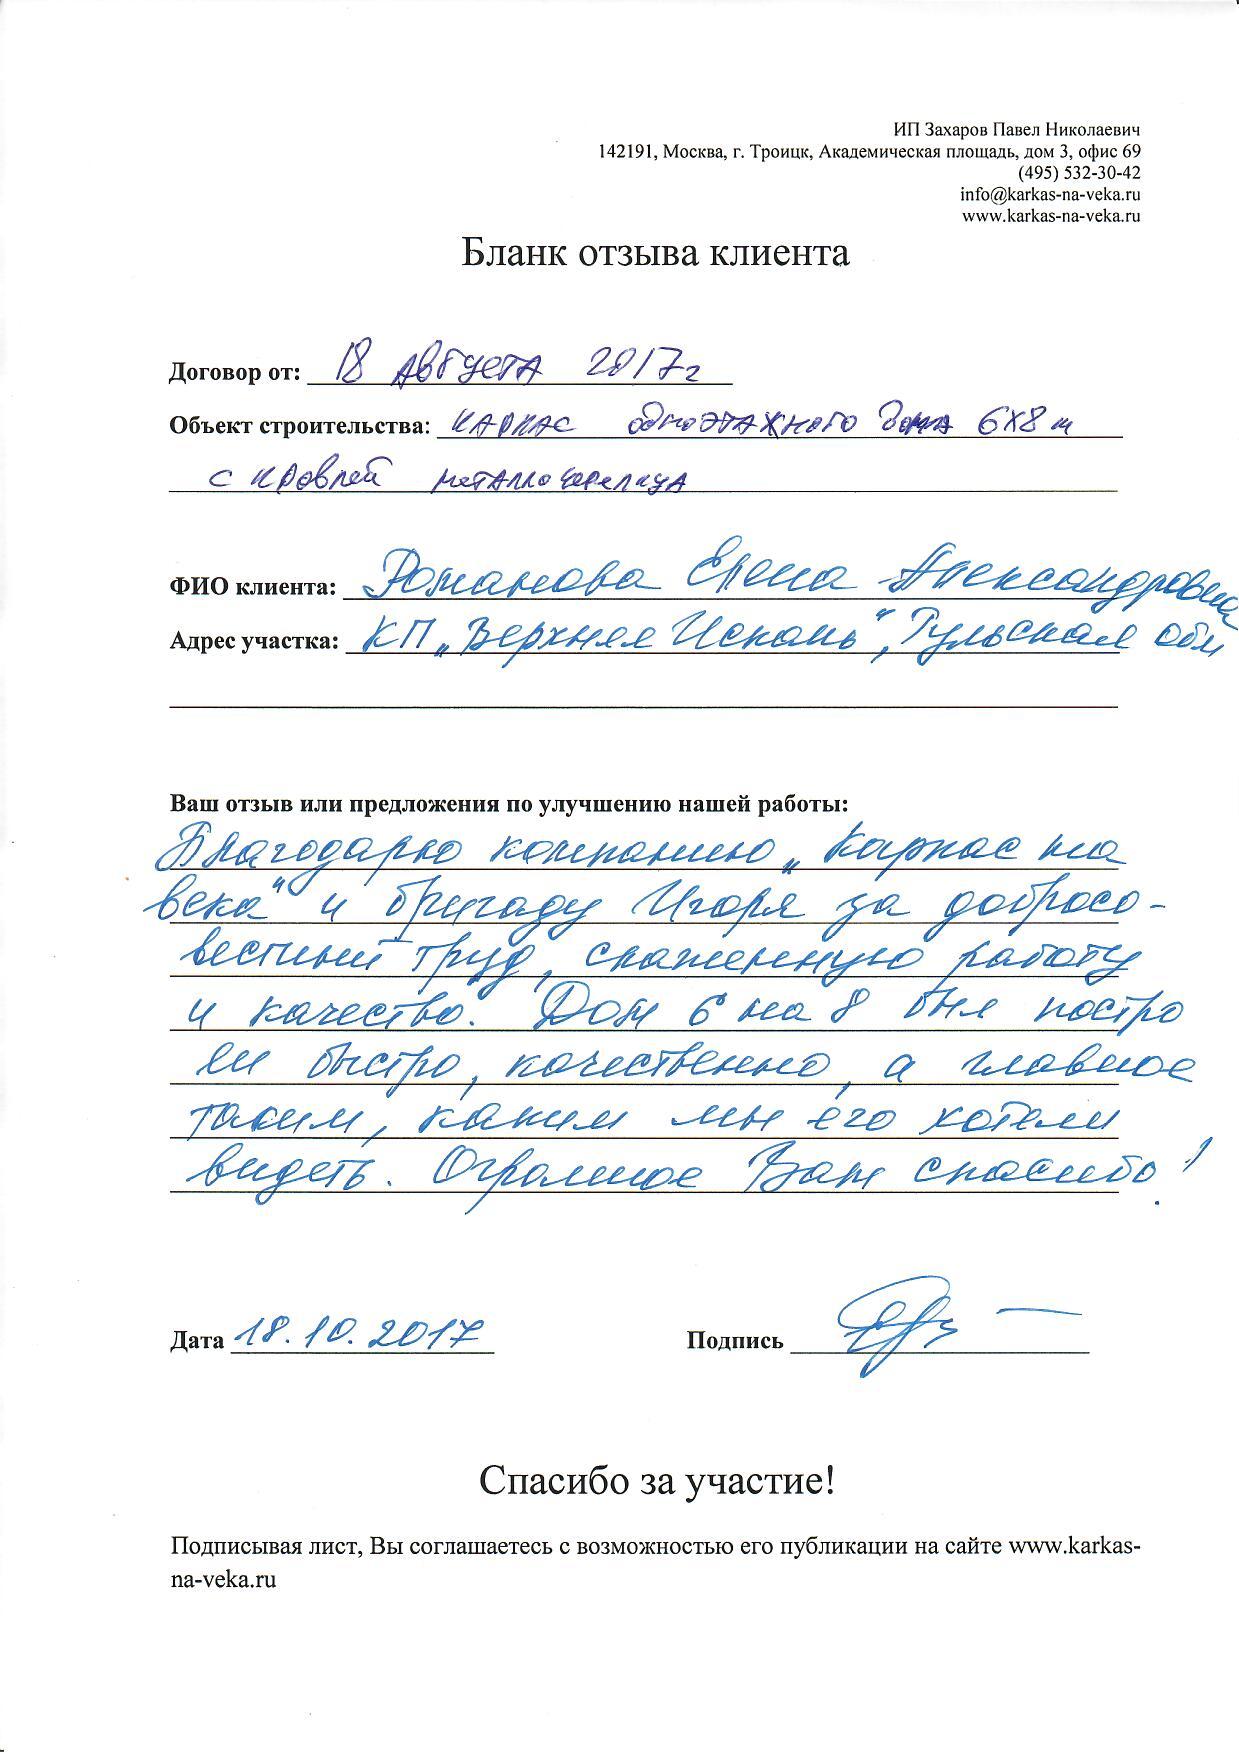 ИП Захаров Павел Николаевич
142191, Москва, г. Троицк, Академическая площадь, дом 3, офис 69
(495) 532-30-42
info@karkas-na-veka.ru
www.karkas-na-veka.ru
Бланк отзыва клиента
Договор от: 18 августа 2017г
Объект строительства: каркас одноэтажного дома 6х8 м
с кровлей металлочерепица
ФИО клиента: Романова Елена Александровна
Адрес участка: КП „Верхняя Исконь", Тульская обл
Ваш отзыв или предложения по улучшению нашей работы:
Благодарю компанию „Каркас на
века" и бригаду Игоря за добросо-
вестный труд, слаженную работу
и качество. Дом 6 на 8 был постро
ен быстро, качественно, а главное
таким, каким мы его хотели
видеть. Огромное Вам спасибо!
Дата 18.10.2017 Подпись
Спасибо за участие!
Подписывая лист, Вы соглашаетесь с возможностью его публикации на сайте www.karkas-
na-veka.ru